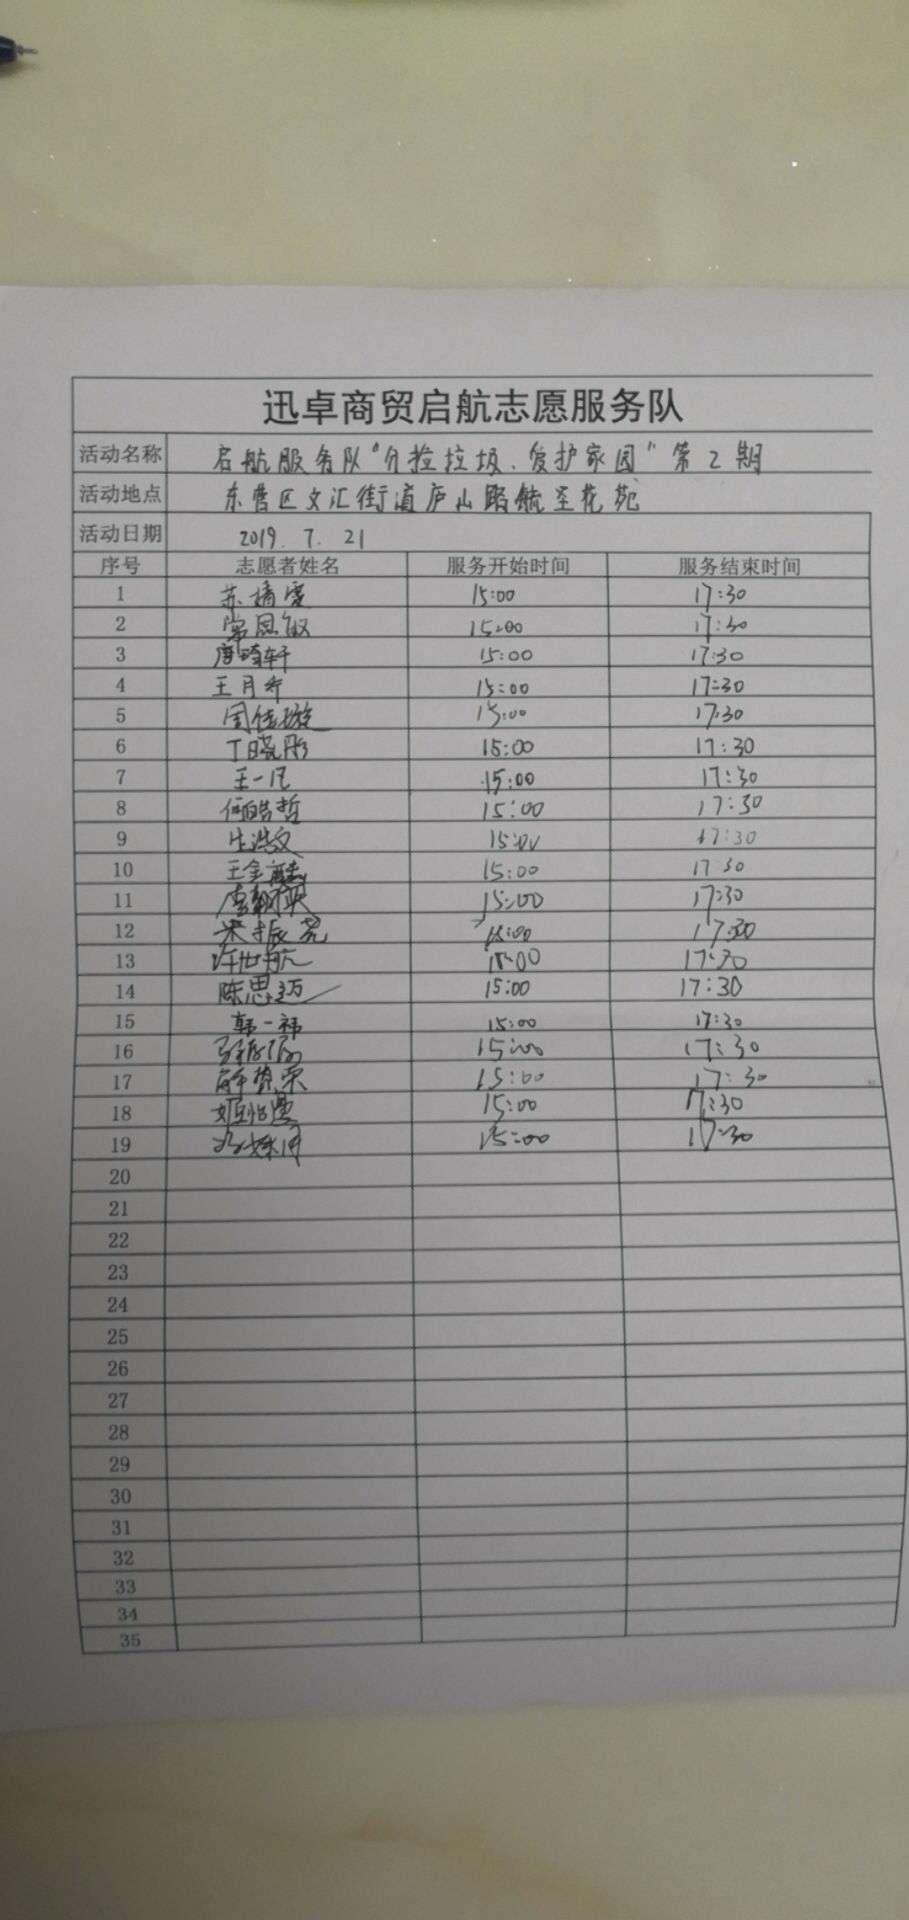 迅卓商贸启航志愿服务队
活动名称 启航服务队"分捡垃圾、爱护家园"第2期
活动地点 东营区文汇街道庐山路毓圣花苑
活动日期 2019.7.21
序号 志愿者姓名 服务开始时间 服务结束时间
1 苏 15:00 17:30
2 常思 15:00 17:30
3 唐 轩 15:00 17:30
4 王月 15:00 17:30
5 周佳璇 15:00 17:30
6 丁晓彤 15:00 17:30
7 王一凡 15:00 17:30
8 皓哲 15:00 17:30
9 生浩文 15:00 17:30
10 王金 15:00 17:30
11 15:00 17:30
12 宋振尧 15:00 17:30
13 许世航 15:00 17:30
14 陈思迈 15:00 17:30
15 韩一祎 15:00 17:30
16 15:00 17:30
17 解 荣 15:00 17:30
18 姬 15:00 17:30
19 15:00 17:30
20
21
22
23
24
25
26
27
28
29
30
31
32
33
34
35